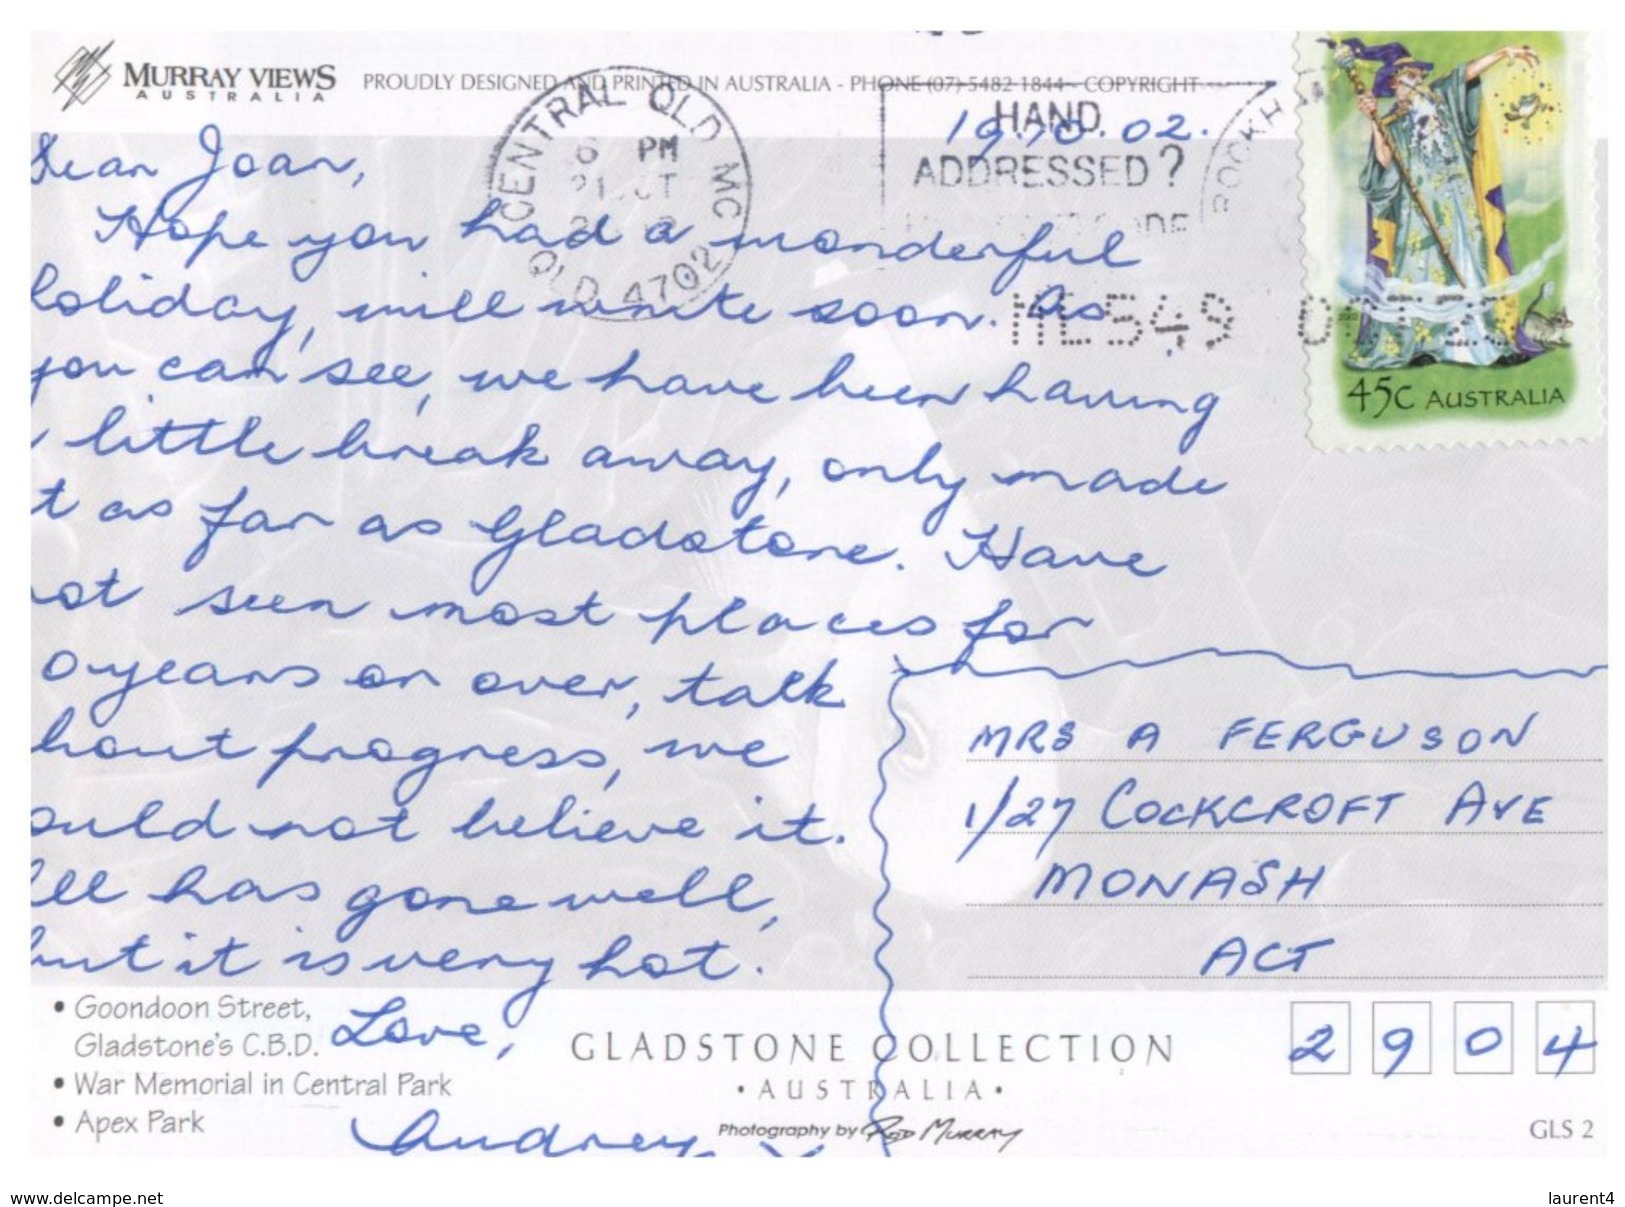 MURRAY VIEWS
AUSTRALIA
PROUDLY DESIGNED AND PRINTED IN AUSTRALIA - PHONE (07) 5482 1844 - COPYRIGHT
CENTRAL QLD MC
6 PM
QLD 4702
HAND
ADDRESSED?
19.10.02.
45c AUSTRALIA
Dear Joan,
Hope you had a wonderful
holiday, will write soon. As
you can see, we have been having
little break away, only made
t as far as Gladstone. Have
ot seen most places for
0 years or over, talk
bout progress, we
ould not believe it.
ll has gone well,
but it is very hot.
Love,
Audrey
MRS A FERGUSON
1/27 COCKCROFT AVE
MONASH
ACT
2904
• Goondoon Street,
Gladstone's C.B.D.
• War Memorial in Central Park
• Apex Park
GLADSTONE COLLECTION
• AUSTRALIA •
Photography by Rod Murray
GLS 2
www.delcampe.net
laurent4